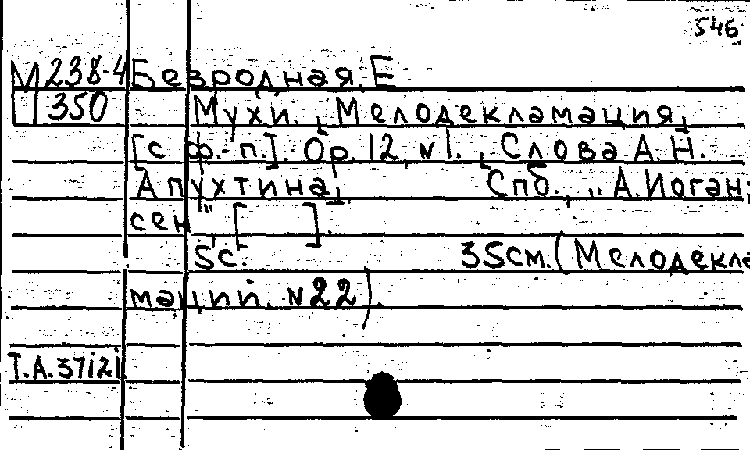 546
М 238-4 Безродная, Е
350 Мухи. Мелодекламация
[с ф.-п.]. Op. 12, N1. Слова А. Н.
Апухтина. Спб., „А.Иоган-
сен", [ ].
5с. 35см. (Мелодекла
маций. N22).
Т.А.3712i